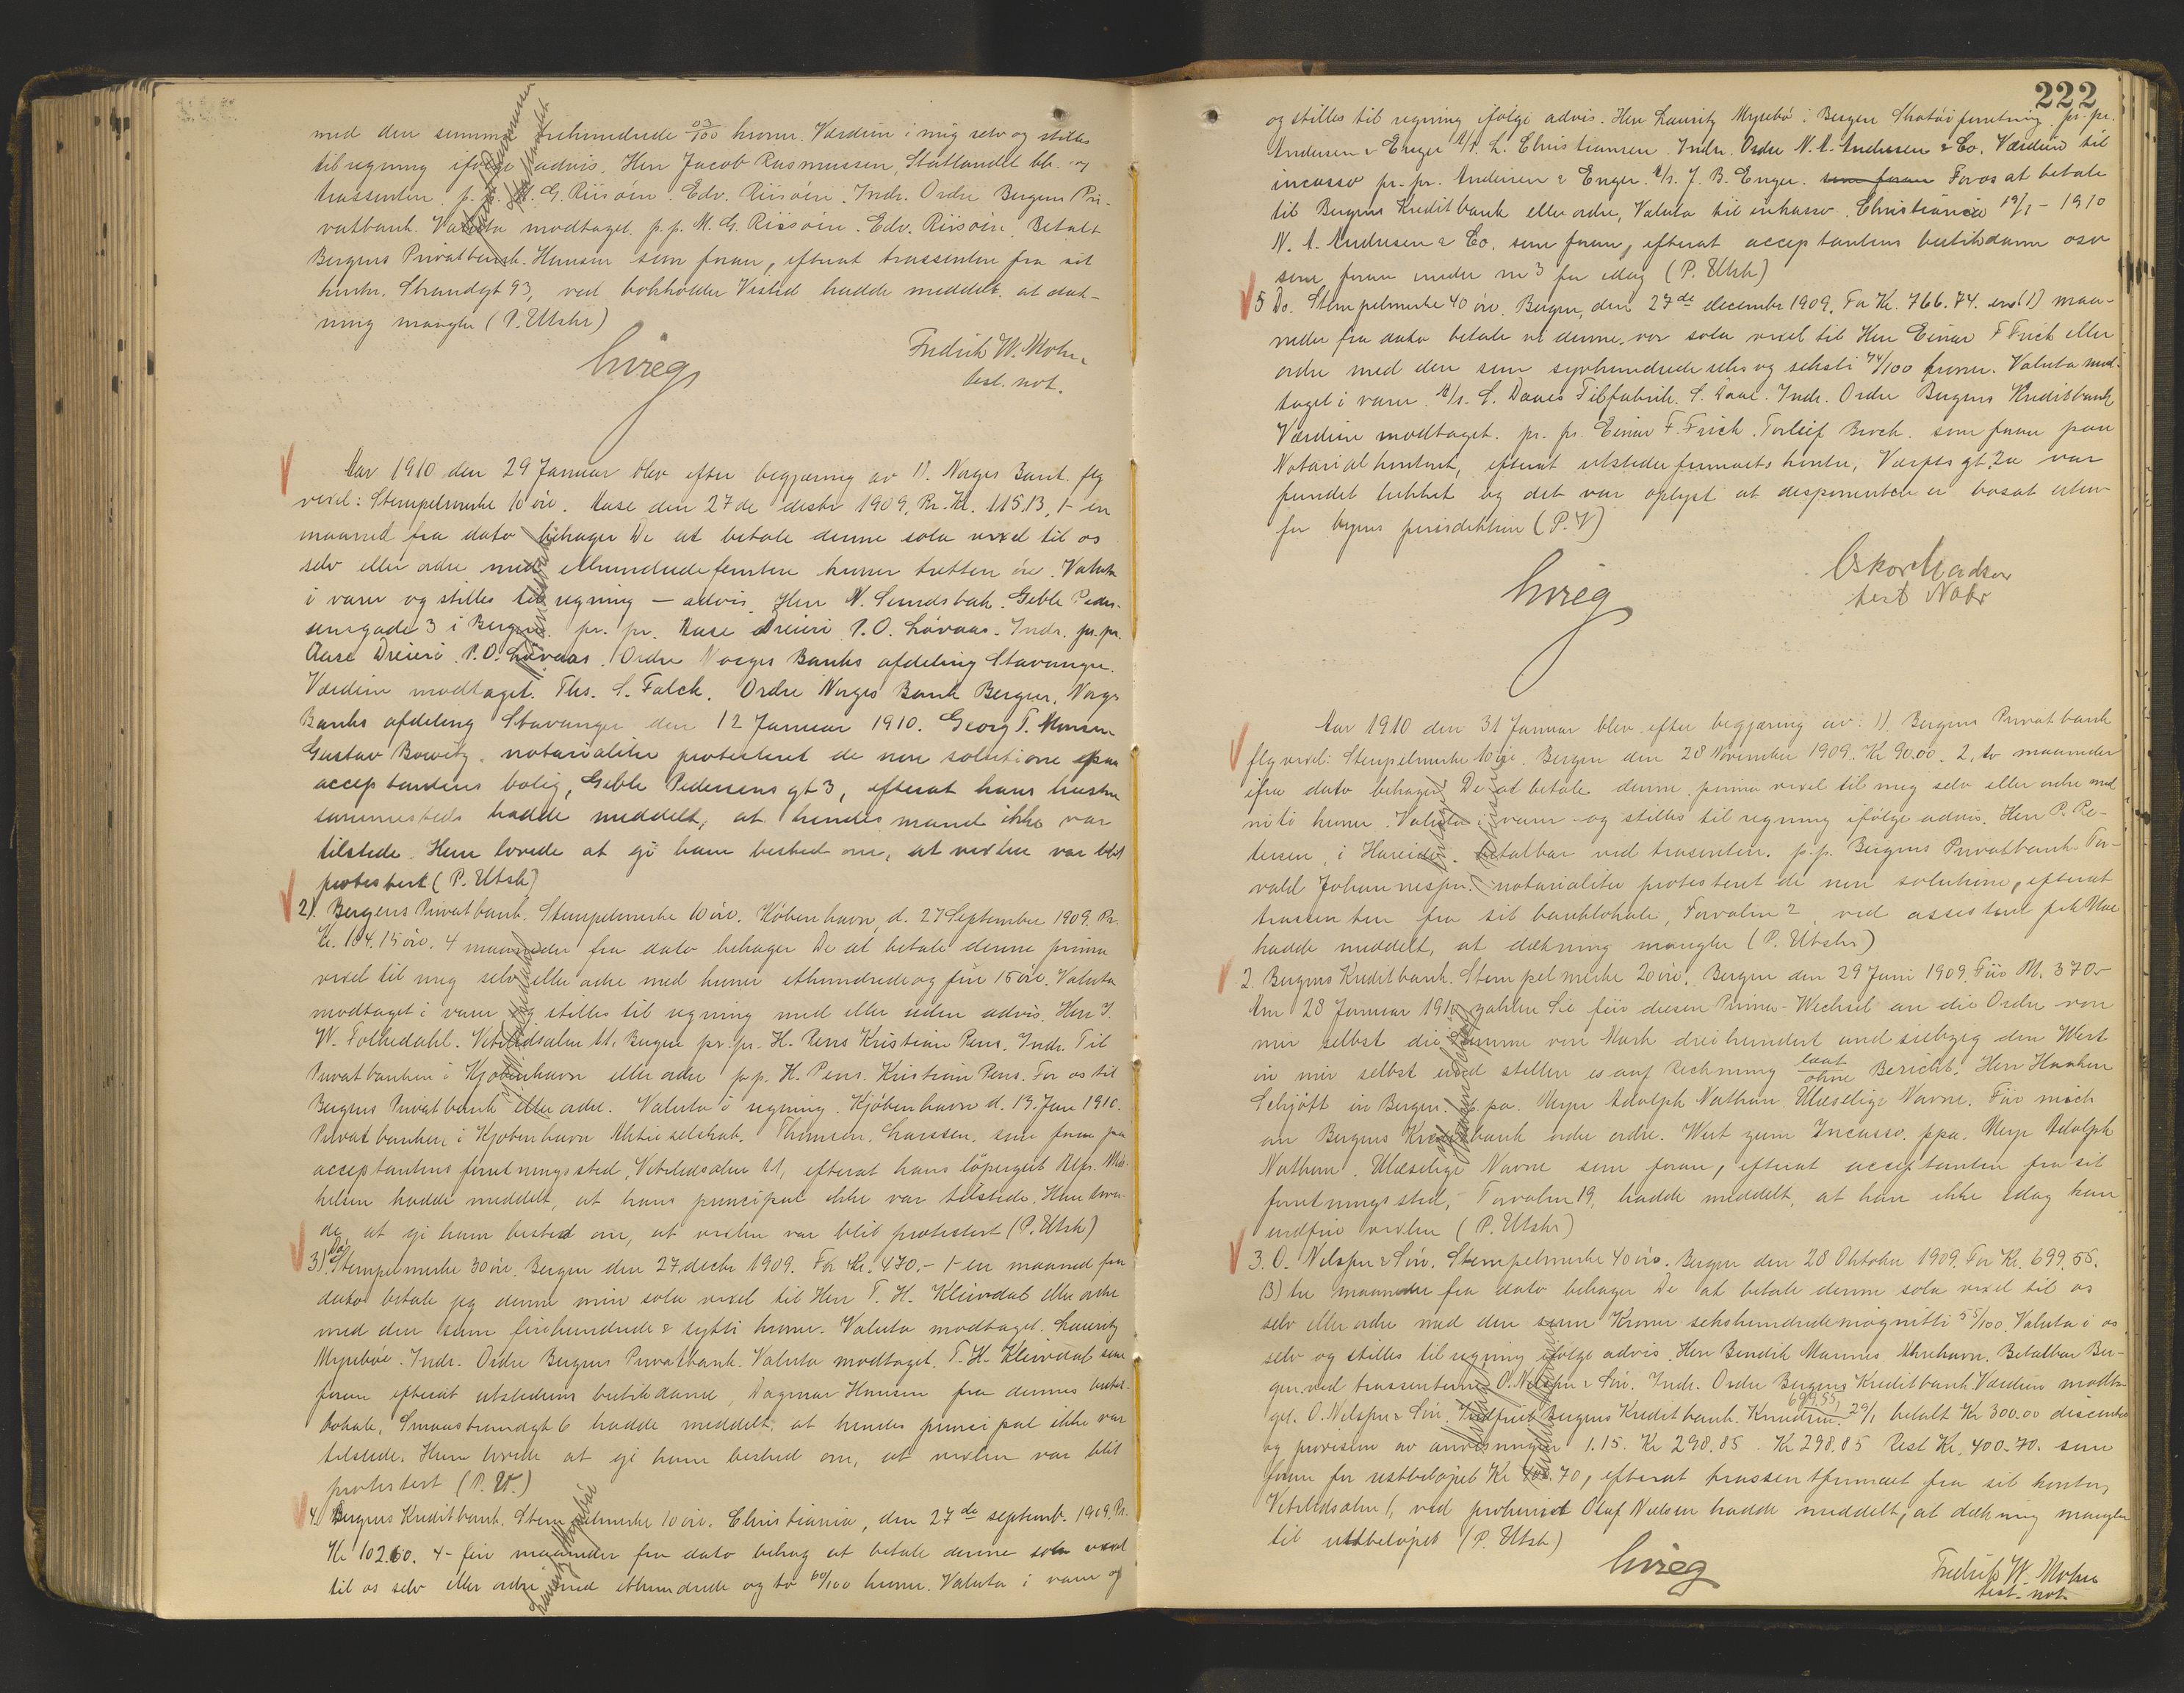 med den summa trehundrede 03/100 kroner. Værdien i mig selv og stilles
til regning ifølge advis. Herr Jacob Rasmussen, Statlandet bb. og
trassenten. p. p. M. G. Riisøen. Edv. Riisøen. Indr. Ordre Bergens Pri-
vatbank. Valuta modtaget. p. p. M. G. Riisøen. Edv. Riisøen. Betalt
Bergens Privatbank. Hansen som foran, efterat trassenten fra sit
kontor. Strandgt 93, ved bokholder Vistid hadde meddelt, at dæk-
ning mangler (P. Utskr)
Fredrik W. Mohr
best. not.
Aar 1910 den 29 Januar blev efter begjæring av 1). Norges Bank. flg
vexel: Stempelmerke 10 øre. Aase den 27de decbr 1909. Pr. Kr. 115.13, 1- en
maaned fra dato behager De at betale denne sola vexel til os
selv eller ordre med ethundredefemten kroner tretten øre. Valuta
i varer og stilles til regning — advis. Herr N. Sundsbak. Geble Peder-
sensgade 3 i Bergen. pr. pr. Aase Dreieri P. O. Løvaas. Indr. pr. pr.
Aase Dreieri. P. O. Løvaas. Ordre Norges Banks afdeling Stavanger.
Værdien modtaget. Ths. S. Falck. Ordre Norges Bank Bergen. Norges
Banks afdeling Stavanger den 12 Januar 1910. Georg T. Monsen.
Gustav Bowitz. notarialiter protesteret de non solutione paa
acceptantens bolig, Geble Pedersens gt 3, efterat hans hustru
sammesteds hadde meddelt, at hendes mand ikke var
tilstede. Hun lovede at gi ham besked om, at vexlen var blit
protestert (P. Utsk)
2). Bergens Privatbank. Stempelmerke 10 øre. København, d. 27 September 1909. Pr.
Kr. 104.15 øre. 4 maaneder fra dato behager De at betale denne prima
vexel til mig selv eller ordre med kroner ethundredeog fire 15 øre. Valuta
modtaget i varer og stilles til regning med eller uden advis. Herr J.
W. Folkedahl. Vetrlidsalm 11, Bergen pr. pr. H. Pens Kristian Pens. Indr. Til
Privatbanken i Kjøbenhavn eller ordre p. p. H. Pens. Kristian Pens. For os til
Bergens Privatbank eller ordre. Valuta i regning. Kjøbenhavn d. 13. Jan 1910.
Privatbanken i Kjøbenhavn Aktieselskab. Thomsen. Larssen. som foran paa
acceptantens forretningssted, Vetrlidsalm 11, efterat hans løpergut Alfr. Mik-
kelsen hadde meddelt, at hans principal ikke var tilstede. Han love-
de, at gi ham besked om, at vexlen var blit protestert (P. Utsk)
3). Do. Stempelmerke 30 øre. Bergen den 27. decbr 1909. For Kr. 470.- 1- en maaned fra
dato betale jeg denne min sola vexel til Herr T. H. Kleivdal eller ordre
med den sum firehundrede & sytti kroner. Valuta modtaget. Lauritz
Myrebøe. Indr. Ordre Bergens Privatbank. Valuta modtaget. T. H. Kleivdal som
foran efterat utstederens butikdame, Dagmar Hansen fra dennes butik-
lokale, Smaastrandgt 6 hadde meddelt, at hendes principal ikke var
tilstede. Hun lovede at gi ham besked om, at vexlen var blit
protestert (P. U.)
4. Bergens Kreditbank. Stempelmerke 10 øre. Christiania, den 27de septemb. 1909. Pr.
Kr 102.60. 4- fire maaneder fra dato behag at betale denne sola vexel
til os selv eller ordre med ethundrede og to 60/100 kroner. Valuta i varer og
Lauritz Myrebøe
222
og stilles til regning ifølge advis. Herr Lauritz Myrebø i Bergen Skotøiforretning. pr. pr.
Andersen & Enger A/S. L. Christiansen. Indr. Ordre N. A. Andresen & Co. Værdien til
incasso pr. pr. Andersen & Enger. A/S. J. B. Enger. som foran For os at betale
til Bergens Kreditbank eller ordre, Valuta til inkasso. Christiania 19/1 - 1910
N. A. Andresen & Co. som foran, efterat acceptantens butikdame osv
som foran under nr 3 for idag (P. Utsk)
5 Do. Stempelmerke 40 øre. Bergen, den 27de december 1909. For Kr. 766.74. en (1) maa-
neder fra dato betale vi denne vor sola vexel til Herr Einar F Frich eller
ordre med den sum syvhundrede seks og seksti 74/100 kroner. Valuta mod-
taget i varer. A/S. S. Daaes Filfabrik. S. Daae. Indr. Ordre Bergens Kreditbank
Værdien modtaget. pr. pr. Einar F. Frich. Torleif Broch. som foran paa
Notarialkontoret, efterat utstederfirmaets kontor,Værftsgt. 2a var
fundet lukket og det var oplyst at disponenten er bosat uten-
for byens jurisdiktion (P. U)
Oskar Madsen
best Notr
Aar 1910 den 31 Januar blev efter begjæring av: 1) Bergens Privatbank
flg vexel: Stempelmerke 10 øre. Bergen den 28 November 1909. Kr 90.00. 2, to maaneder
ifra dato behager De at betale denne prima vexel til mig selv eller ordre med
nitti kroner. Valuta i varer og stilles til regning ifølge advis. Herr P. Pe-
tersen, i Hareide. betalbar ved trasenten. p. p. Bergens Privatbank. Tor-
vald Johannesen. notarialiter protesteret de non solutione, efterat
trassenten fra sit banklokale, Torvalm 2 ved assistent frk Moe
hadde meddelt, at dækning mangler (P. Utskr)
2. Bergens Kreditbank. Stempelmerke 20 øre. Bergen den 29 Juni 1909. Für M. 370.-
Am 28 Januar 1910 zahlen Sie für diesen Prima-Wechsel an die Ordre von
mir selbst die Summe von Mark dreihundert und siebzig den Wert
in mir selbst und stellen es auf Rechnung laut/ohne Bericht. Herr Haaken
Schjøtt in Bergen. p. pa. Meyr Adolph Nathan. Ulæselige Navne. Für mich
an Bergens Kreditbank oder ordre. Wert zum Incasso. ppa. Meyr Adolph
Nathan. Ulæselige Navne som foran, efterat acceptanten fra sit
forretningssted, Torvalm 19, hadde meddelt, at han ikke idag kan
indfri vexlen (P. Utskr)
3. O. Nilssen & Søn. Stempelmerke 40 øre. Bergen den 28 Oktober 1909. For Kr. 699.55.
(3) tre maaneder fra dato behager De at betale denne sola vexel til os
selv eller ordre med den sum Kroner sekshundredeniognitti 55/100. Valuta i os
selv og stilles til regning ifølge advis. Herr Bendik Mannes Akrehavn. Betalbar Ber-
gen ved trassenterne O. Nilssen & Søn. Indr. Ordre Bergens Kreditbank Værdien modta-
get. O. Nilssen & Søn. Indfriet Bergens Kreditbank. Knudsen. 699.55, 29/1 betalt Kr 300.00 disconto
og provision av anvisningen 1.15. Kr 298.85. Kr 298.85 Rest Kr. 400.70. som
foran for restbeløpet Kr 400.70, efterat trassentfirmaet fra sit kontor,
Vetrlidsalm 1, ved prokurist Olaf Nielsen hadde meddelt, at dækning mangler
til restbeløpet (P. Utsk)
Fredrik W. Mohr
best. not.